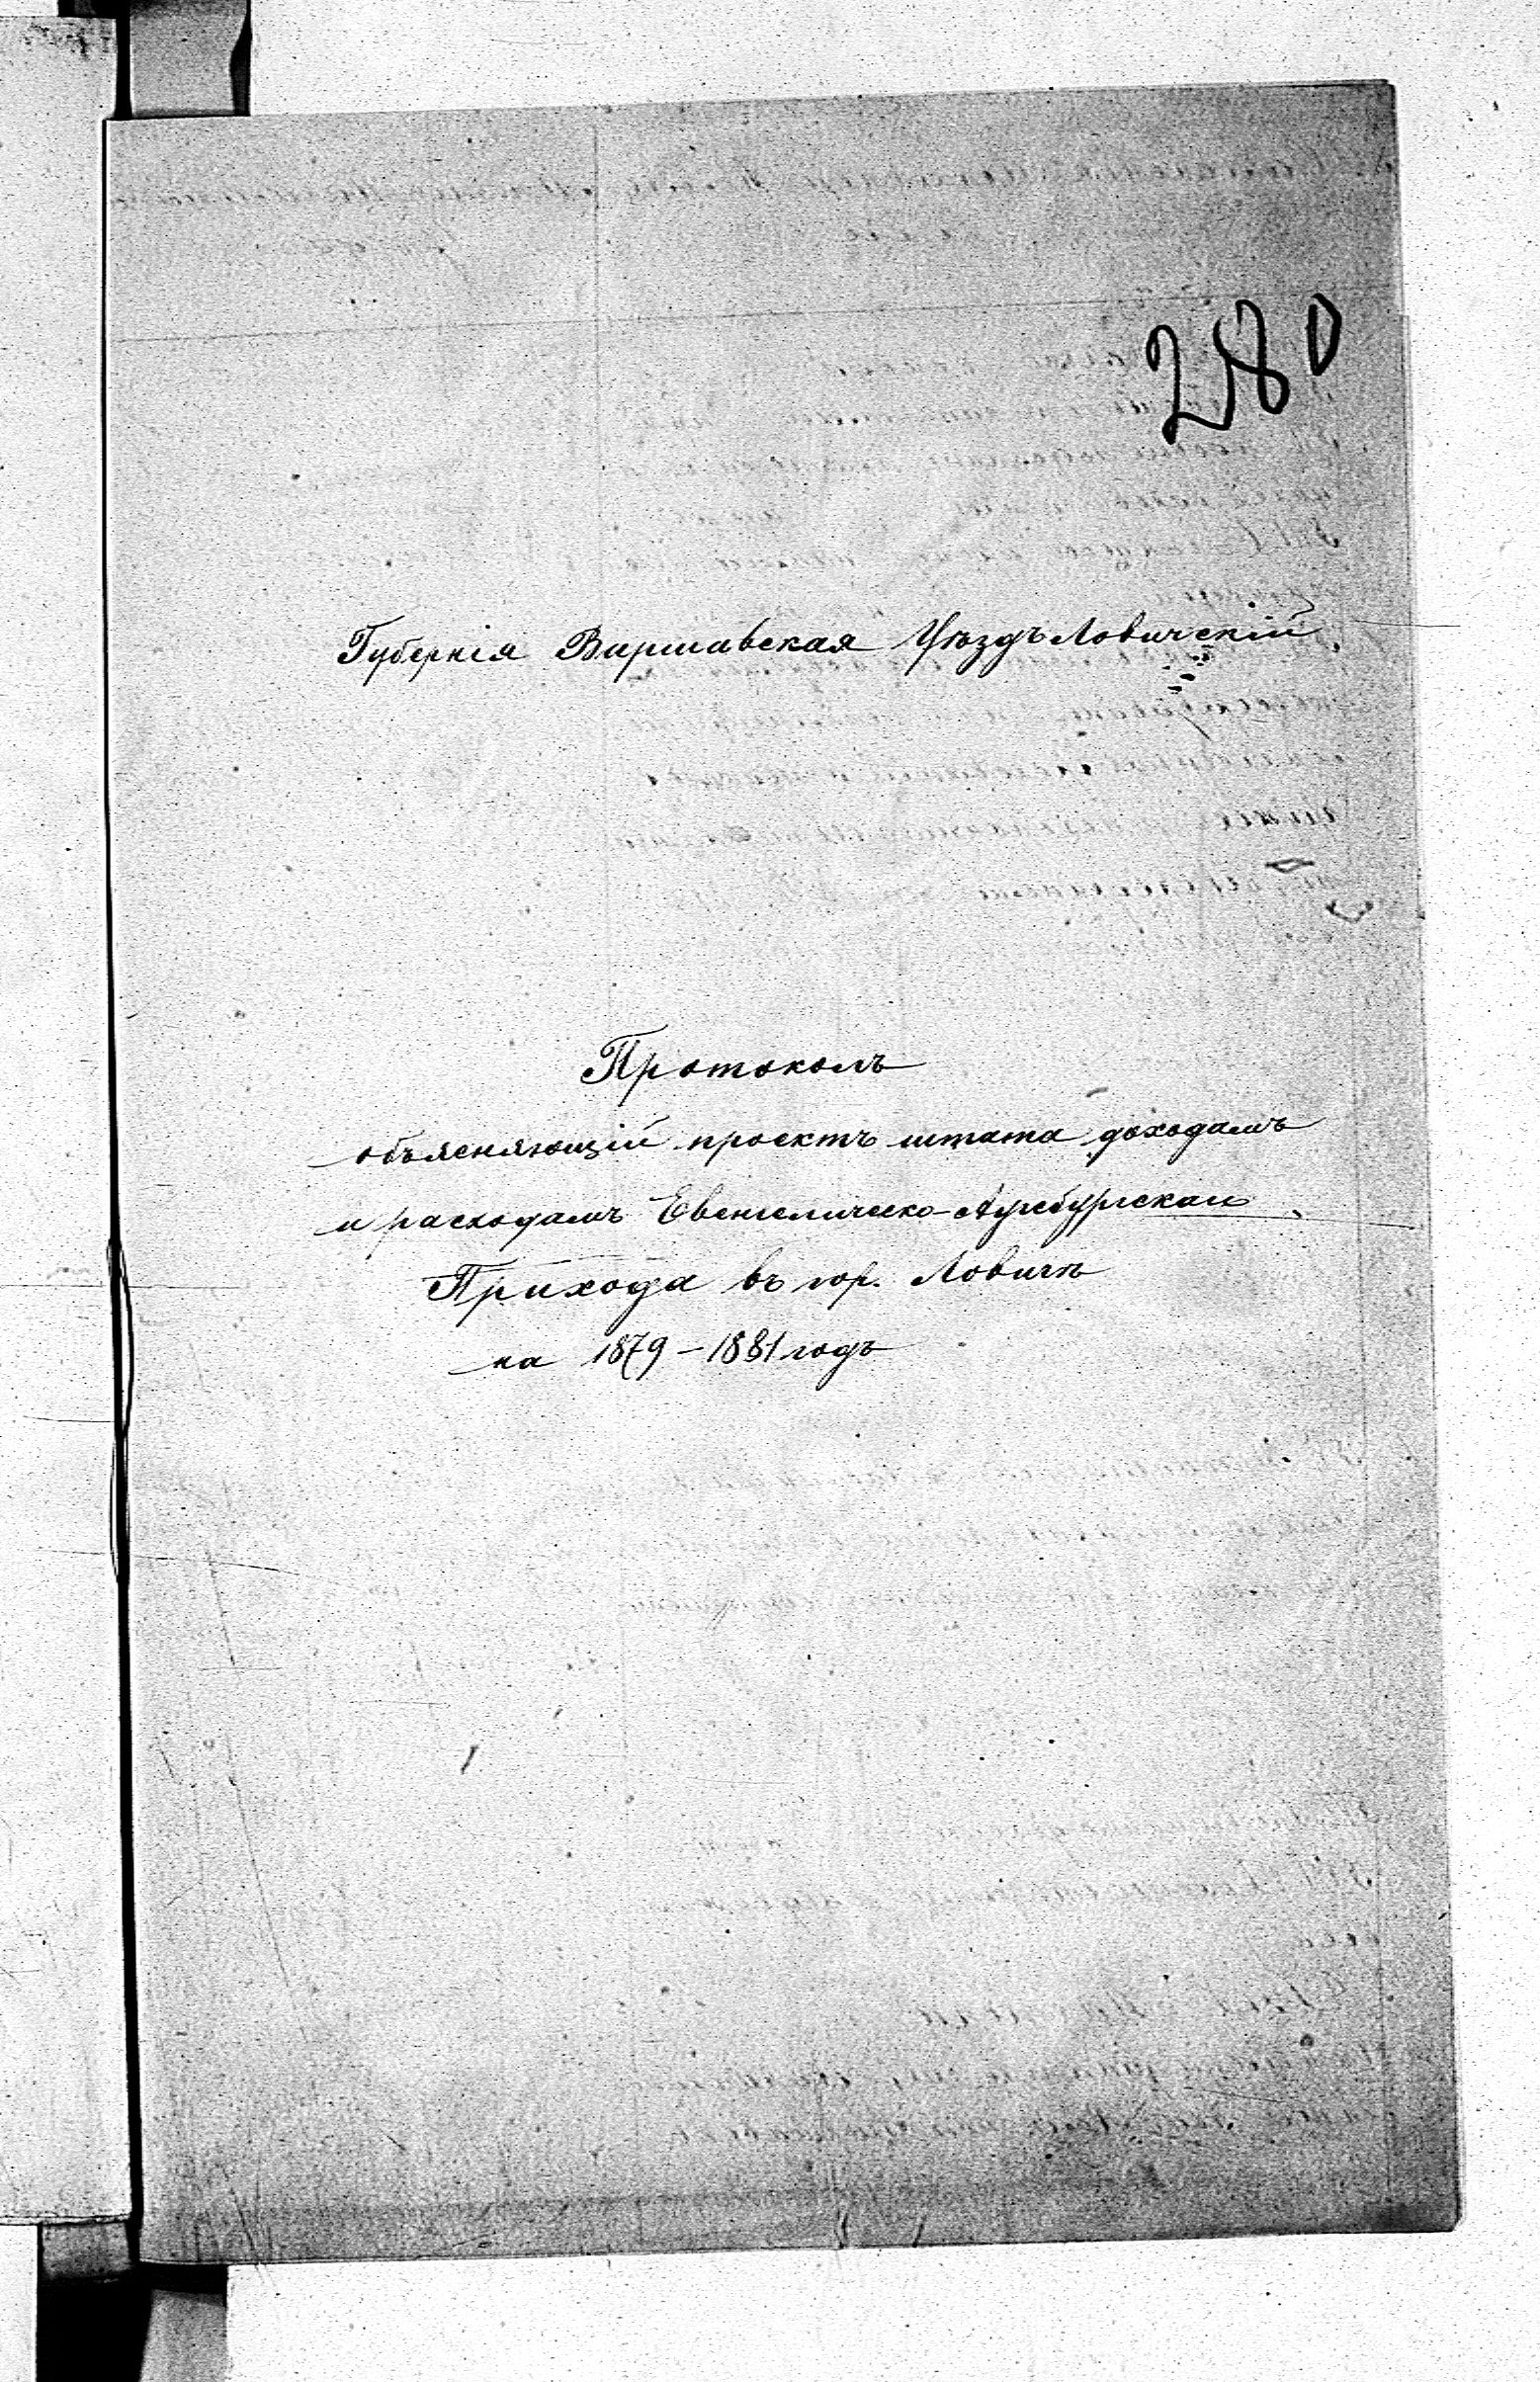 280
Губернія Варшавская Уѣздъ Ловичскій
Протоколъ
объясняющій проектъ штата доходамъ
и расходамъ Евангелическо-Аугсбургскаго
Прихода въ гор. Ловичѣ
на 1879-1881 годъ